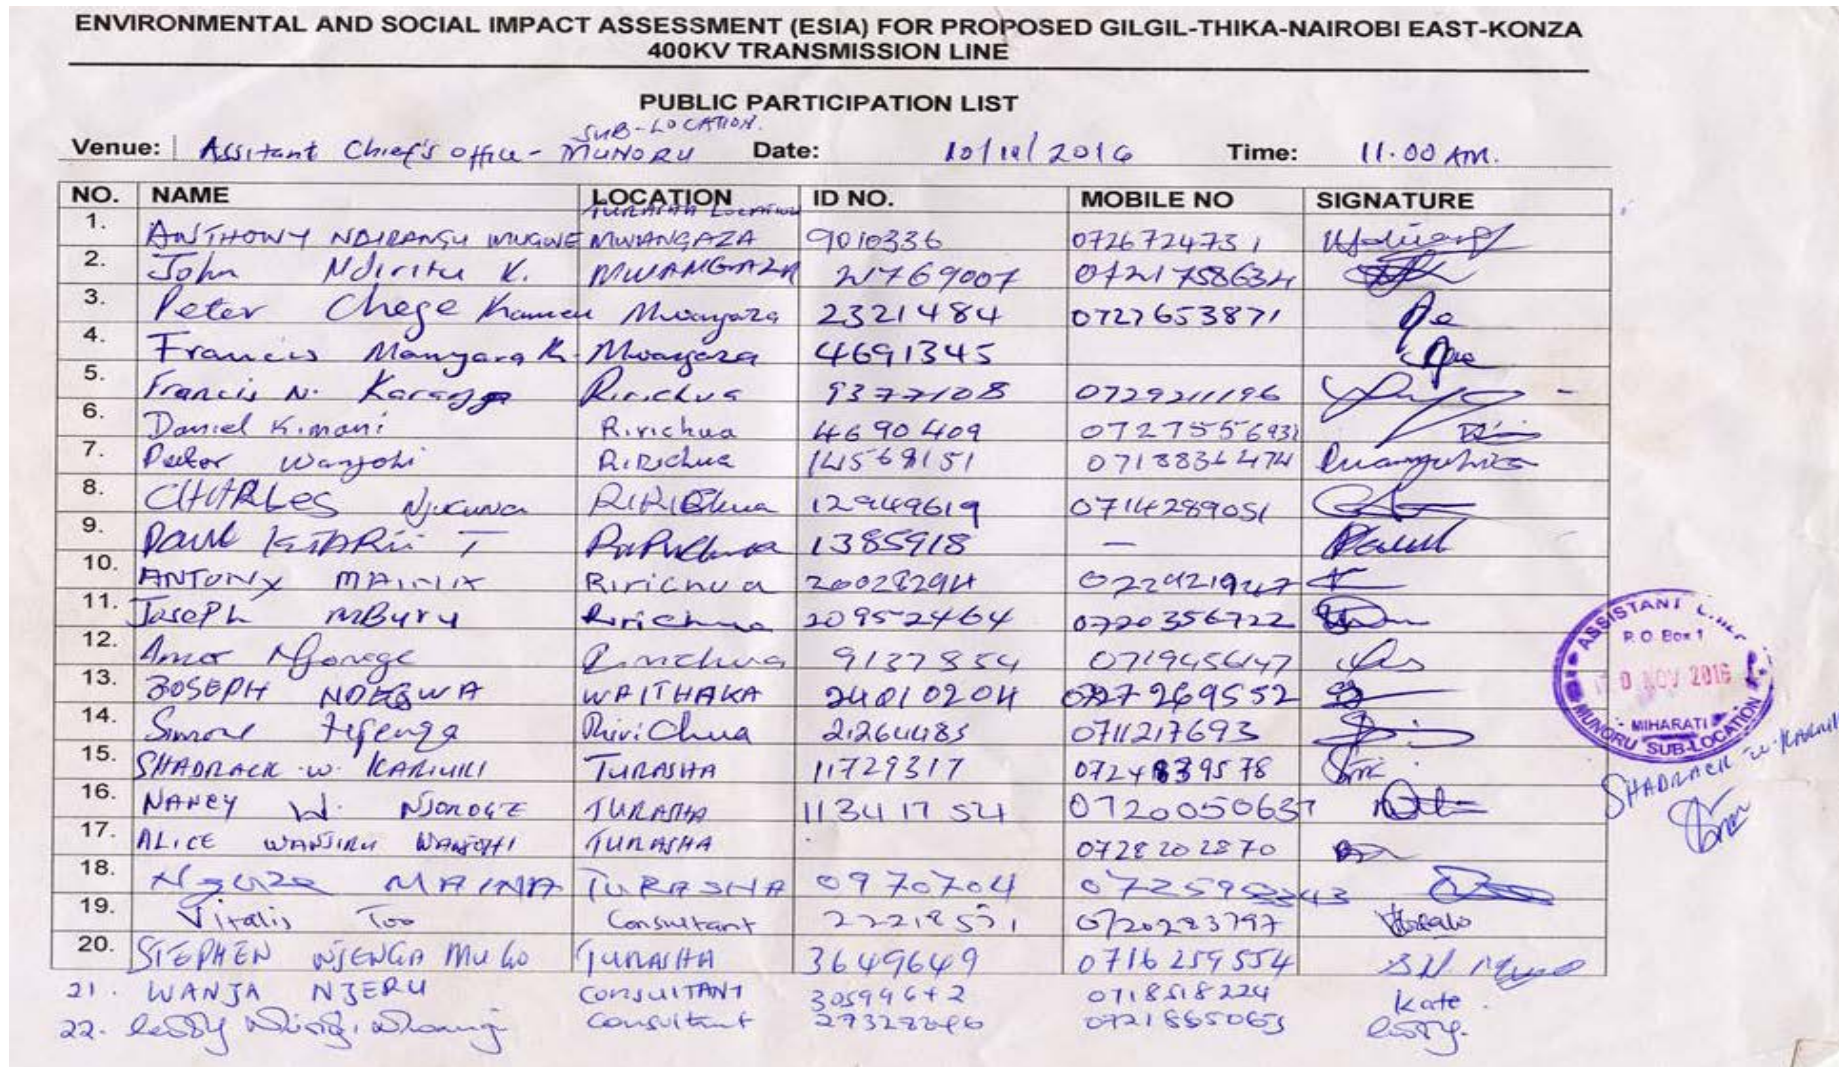 ENVIRONMENTAL AND SOCIAL IMPACT ASSESSMENT (ESIA) FOR PROPOSED GILGIL-THIKA-NAIROBI EAST-KONZA
400KV TRANSMISSION LINE
PUBLIC PARTICIPATION LIST
SUB-LOCATION.
Venue: Assitant Chief's office - MUNORU Date: 10/11/2016 Time: 11.00 AM.
NO. NAME LOCATION ID NO. MOBILE NO SIGNATURE
TURASHA LOCATION
1. ANTHONY NDIRANGU MUGWE MWANGAZA 9010336 0726724731
2. John Ndiritu K. MWANGAZA 21769007 0721758634
3. Peter Chege Kamau Mwangaza 2321484 0727653871
4. Francis Manyara K. Mwangaza 4691345
5. Francis N. Ririchua 9377108 0729211196
6. Daniel Kimani Ririchua 4690409
7. Peter Wanjohi Ririchua 14568151 0718836474
8. CHARLES Njuguna RIRIChua 12949619 0714289051
9. PAUL T 1385918 —
10. ANTONY MAINA Ririchua
11. Joseph MBURU Ririchua 20952464 0720356722
12. Njoroge Ririchua 9137854
13. JOSEPH NDEGWA WAITHAKA 24010204 0727269552
14. Simon Njenga RiriChua 0711217693
15. SHADRACK .W. KARIUKI TURASHA 11729317 0724839578
16. NANCY W. NJOROGE TURASHA 11341754 0720050637
17. ALICE WANJIRU WANJOHI TURASHA 0728202870
18. MAINA TURASHA 0970704
19. Vitalis Too Consultant 0720283797
20. STEPHEN NJENGA MUGO TURASHA 3649649 0716259554 SN Mugo
21. WANJA NJERU CONSULTANT 0718518224 Kate.
22. Consultant
ASSISTANT CHIEF
P.O. Box 1
10 NOV 2016
MIHARATI
MUNORU SUB-LOCATION
SHADRACK W. KARIUKI